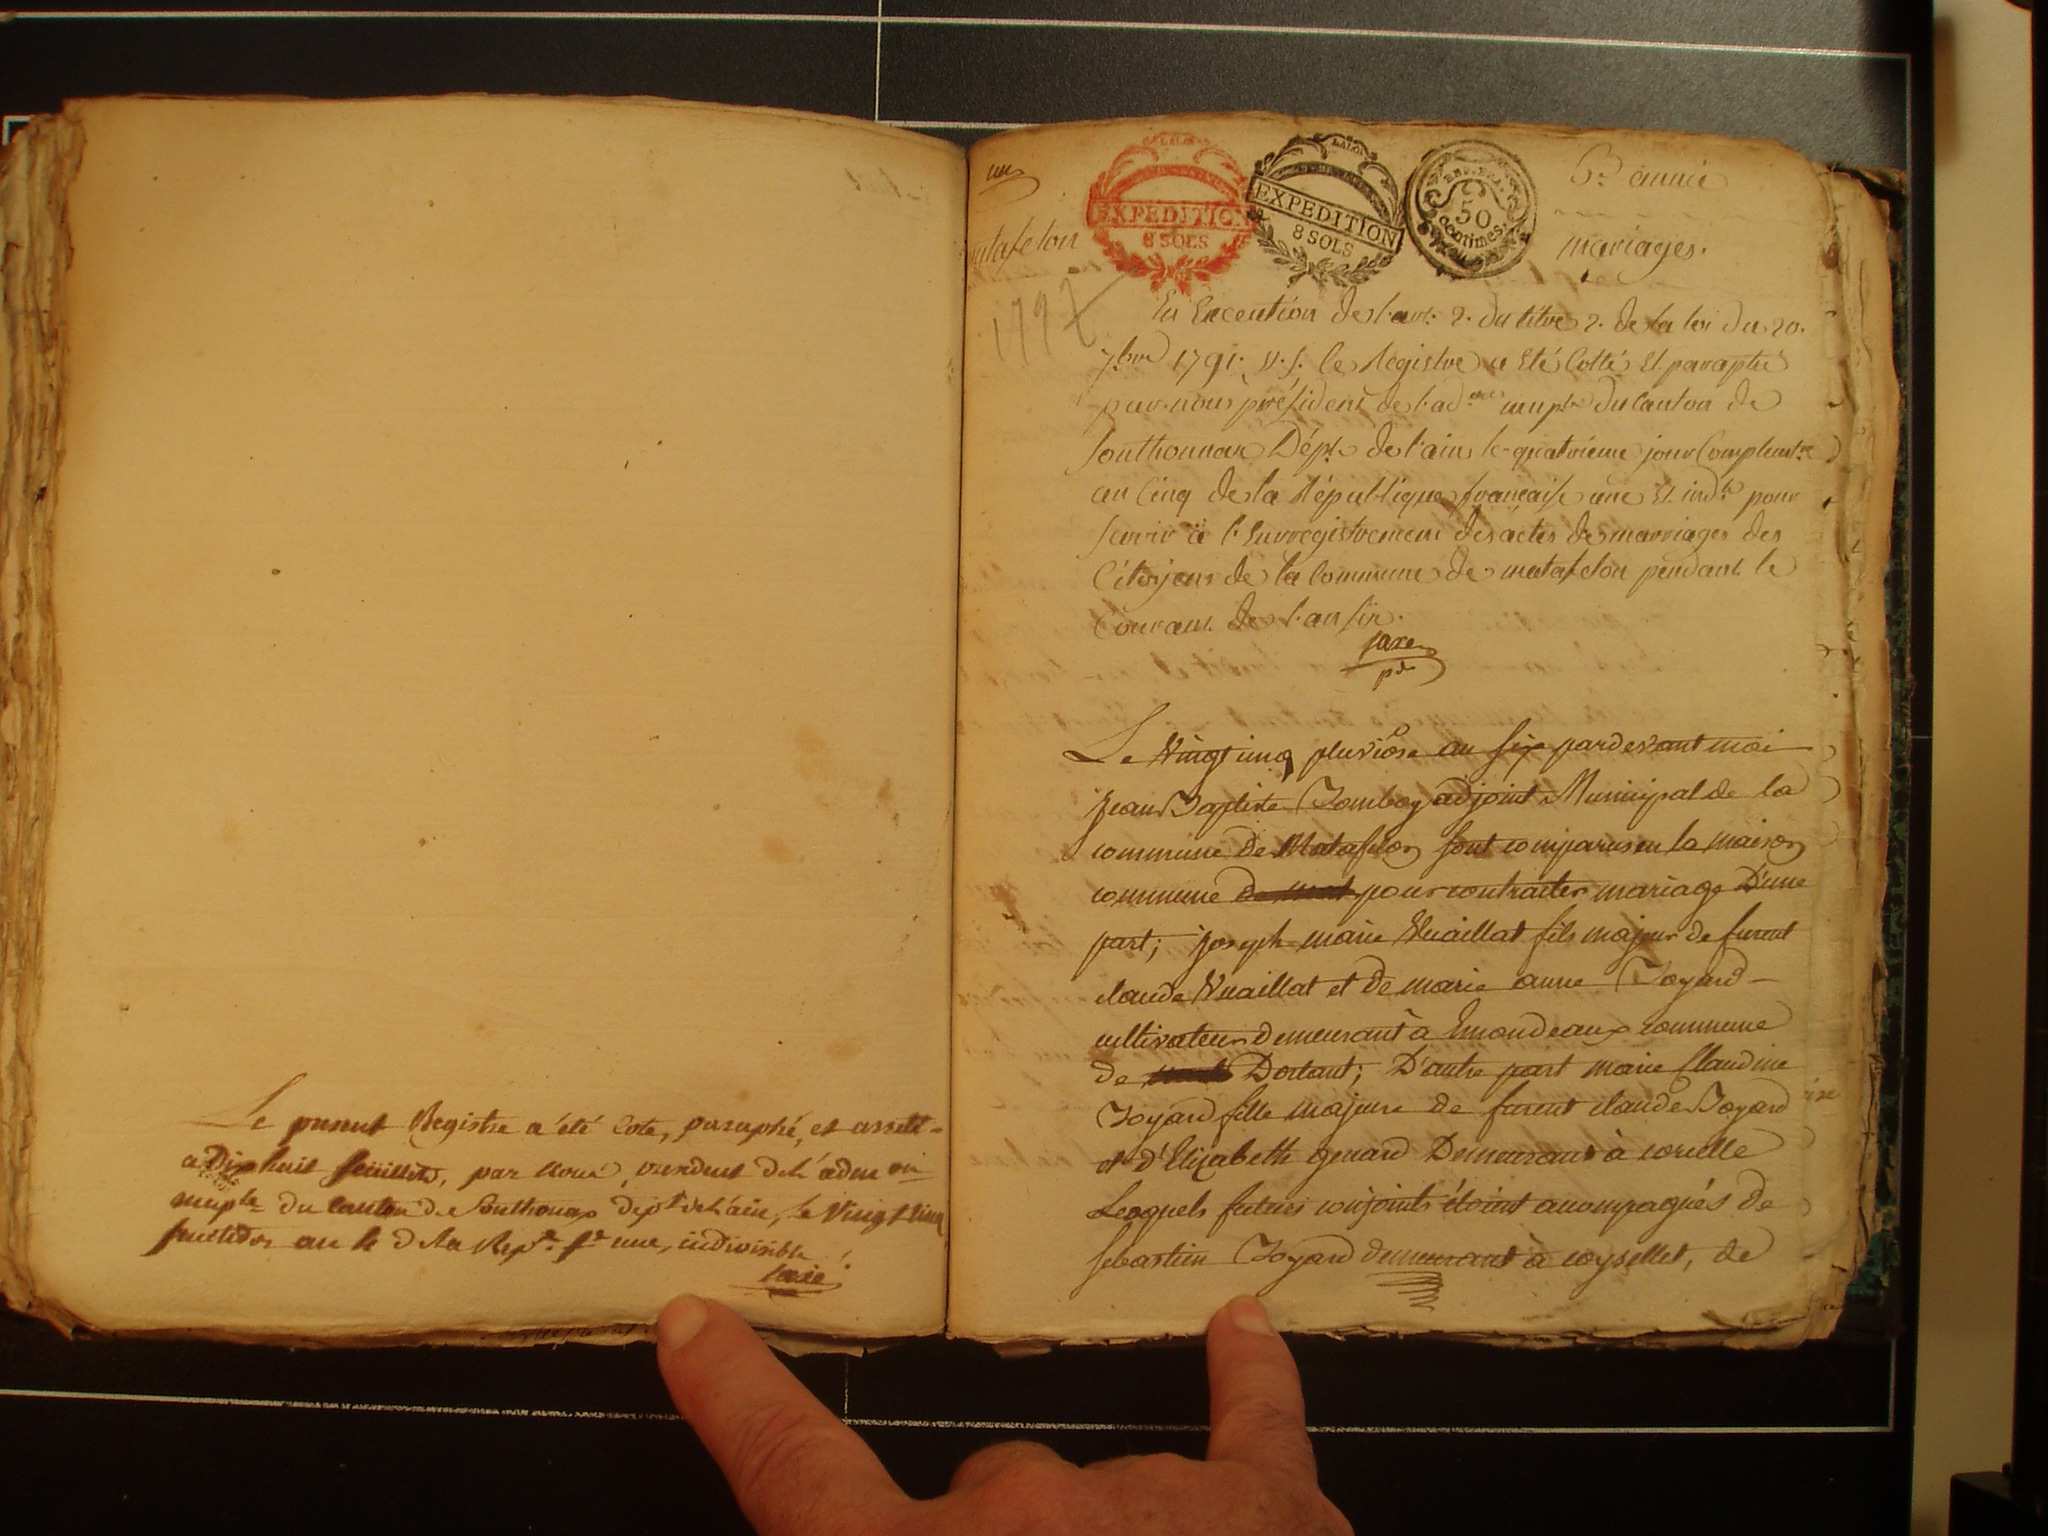 Le present Registre a été Coté, paraphé, et arreté
a Dix huit feuillets, par Nous, president de l'adm on
mup.le du Canton de Southonax dép.t de L'ain, le Vingt cinq
fructidor an 4 de la Rep.e f.e une, indivisible.
Jaxe
un
6.e année
matafelon
mariages.
EXPEDITION
8 SOLS
LA LOI
EXPEDITION
8 SOLS
50
Centimes.
1797
En Execution de l'art. 2. du titre 2. de la loi du 20.
7.bre 1791. v. s. le Registre a Eté Cotté Et paraphé
par nous président de l'ad.on mup.le du Canton de
Southonnax Dép.t de l'ain le quatrieme jour Complem.re
an Cinq de la République francaise une Et ind.le pour
servir a l'Enregistrement des actes de marriages des
Citoyens de la Commune de matafelon pendant le
Courant de l'an six.
Jaxe
p.dt
Le Vingt cinq pluviose an six pardevant moi
jean Baptiste adjoint Municipal de la
commune de Matafelon sont comparus en la maison
commune de mat pour contracter mariage D'une
part; joseph marie Vuaillat fils majeur de furent
claude Vuaillat et de marie anne Joyard
cultivateur demeurant a Emondeaux commune
de Dortant; D'autre part marie Claudine
Joyard fille majeure de furent claude Joyard
et d'Elizabeth genard Demeurant à corcelle
Lesquels futurs conjoints étoient acompagnés de
sebastien Joyard demeurant à coysellet, de